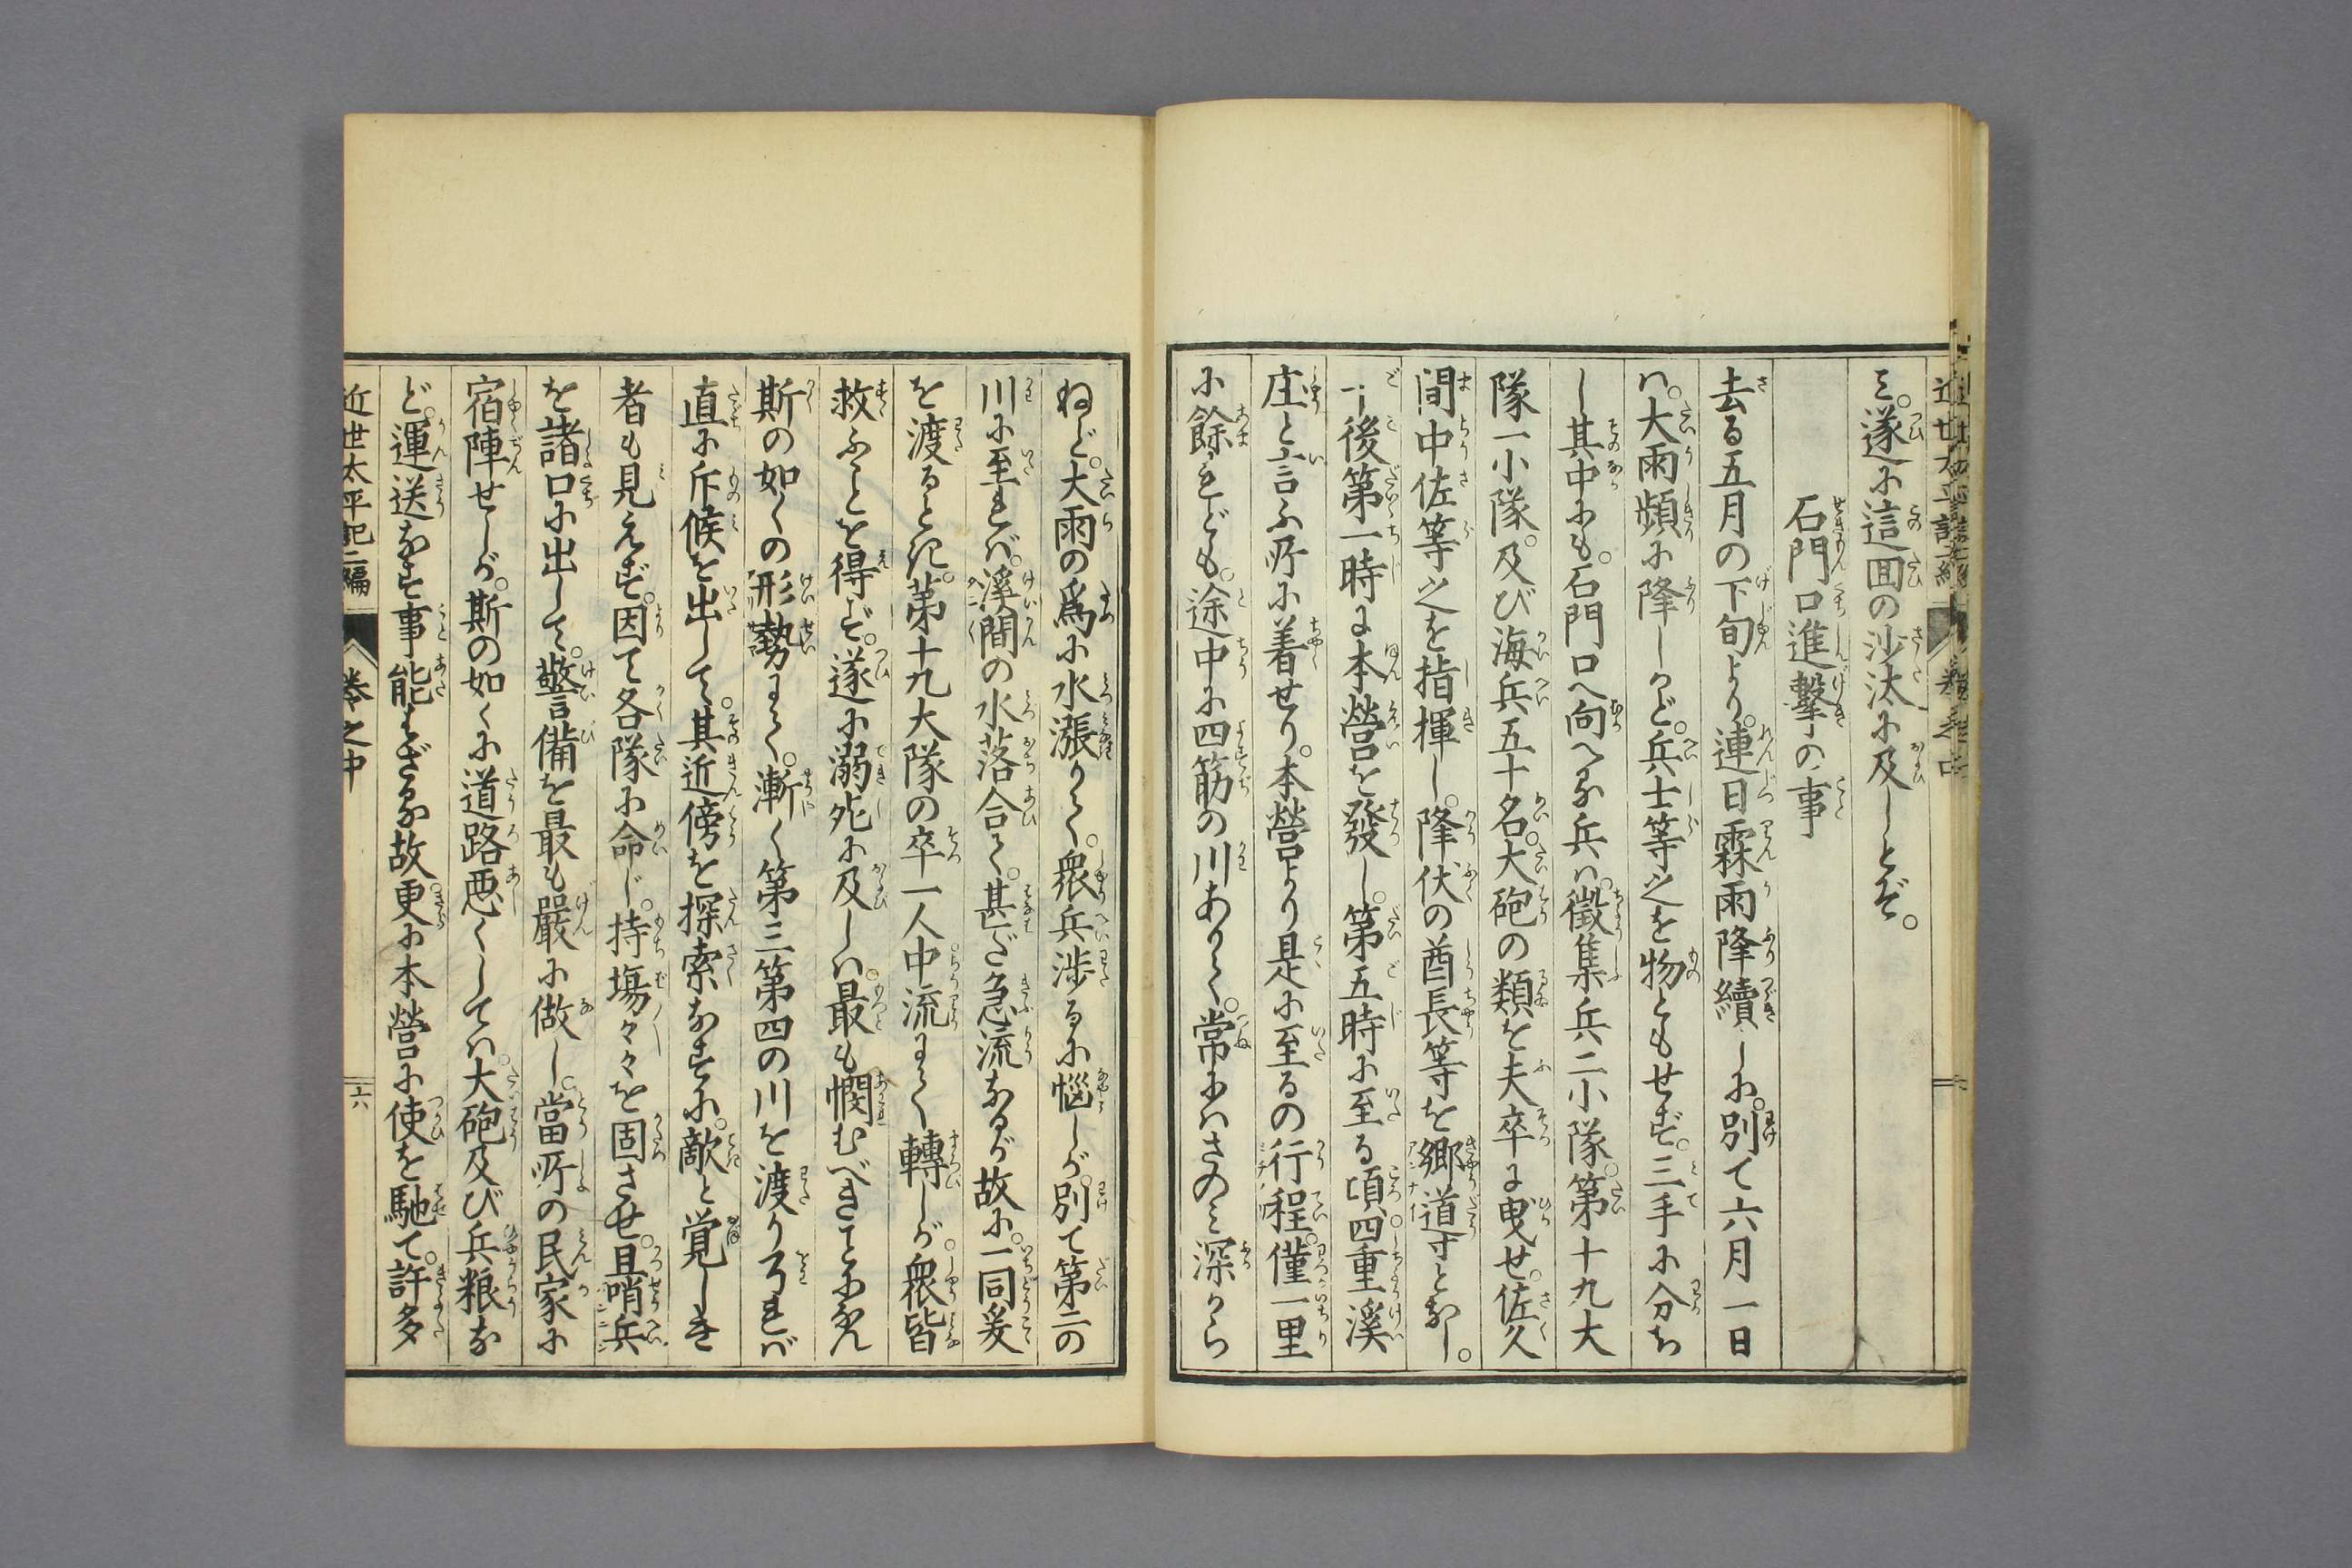 ミ。遂に這回の沙汰に及しとぞ。
石門口進撃の事
去る五月の下旬より。連日霖雨降續しに。別て六月一日
ハ。大雨頻に降しかど。兵士等之を物ともせず。三手に分ち
し其中にも。石門口へ向へる兵ハ。徴集兵二小隊。第十九大
隊一小隊。及び海兵五十名。大砲の類を夫卒に曳せ。佐久
間中佐等之を指揮し。降伏の酋長等を郷道寸となし。
午後第一時に本營を發し。第五時に至る頃。四重溪
庄と言ふ所に着せり。本營より是に至るの行程。僅一里
に餘れども。途中に四筋の川ありて。常にハさのミ深から
ねど。大雨の爲に水漲りて。衆兵渉るに惱しが。別て第二の
川に至れバ。溪間の水落合て。甚だ急流なるが故に。一同爰
を渡るとき。第十九大隊の卒一人中流にて轉しが。衆皆
救ふことを得ず。遂に溺死に及しハ。最も憫むべきことになん
斯の如くの形勢にて。漸く第三第四の川を渡り了れバ
直に斥候を出して。其近傍を探索なすに。敵と覚しき
者も見えず。因て各隊に命じ。持場々々を固させ。且哨兵
を諸口に出して。警備を最も嚴に做し。當所の民家に
宿陣せしが。斯の如くに道路悪くしてハ。大砲及び兵粮な
ど。運送なす事能はざる故。更に本營に使を馳て。許多
近世太平記二編 巻之中 六